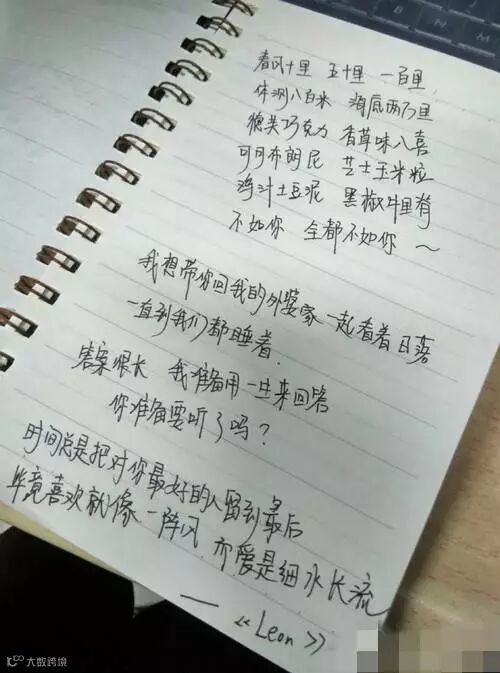 春风十里 五十里 一百里,
体测八百米 海底两万里
德芙巧克力 香草味八喜
可可布朗尼 芝士玉米粒
鸡汁土豆泥 黑椒牛里脊
不如你 全都不如你～
我想带你回我的外婆家 一起看着日落
一直到我们都睡着.
答案很长 我准备用一生来回答
你准备要听了吗?
时间总是把对你最好的人留到最后
毕竟喜欢就像一阵风 而爱是细水长流
—《Leon》
大数跨境